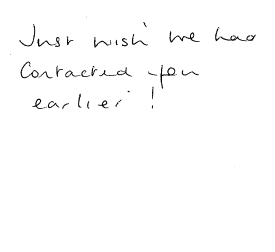 Just wish we had
contacted you
earlier !